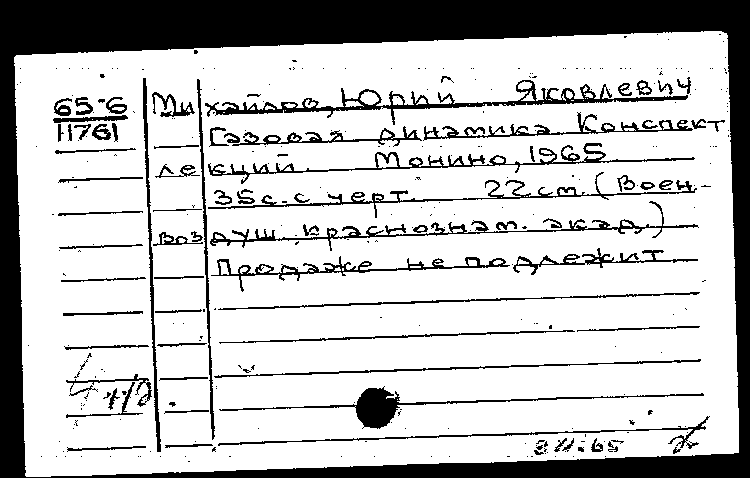 65-6 Михайлов, Юрий Яковлевич
11761 Газовая динамика Конспект
лекций. Монино, 1965
35с. с черт. 22 см. (Воен.-
воздуш. краснознам. акад.)
Продаже не подлежит
8 II-65